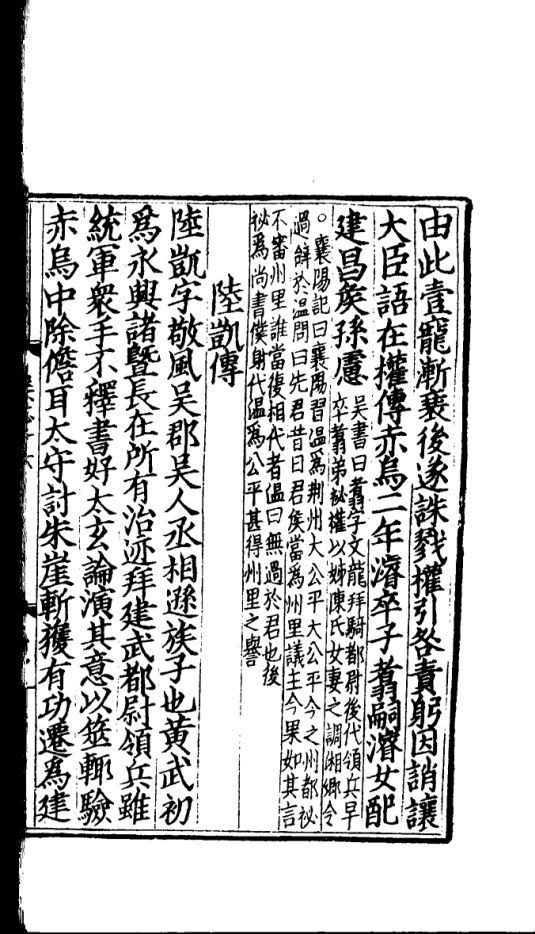 由此壹寵漸衰後遂誅戮權引咎責躬因誚讓
大臣語在權傳赤烏二年濬卒子翥嗣濬女配
建昌矦孫慮
吳書曰翥字文龍拜騎都尉後代領兵早
卒翥弟祕權以姊陳氏女妻之調湘鄉令
。襄陽記曰襄陽習温爲荆州大公平大公平今之州都祕
過辭於温問曰先君昔日君矦當爲州里議主今果如其言
不審州里誰當復相代者温曰無過於君也後
祕爲尚書僕射代温爲公平甚得州里之譽
陸凱傳
陸凱字敬風吳郡吳人丞相遜族子也黄武初
爲永興諸暨長在所有治迹拜建武都尉領兵雖
統軍衆手不釋書好太玄論演其意以筮輙驗
赤烏中除儋耳太守討朱崖斬獲有功遷爲建